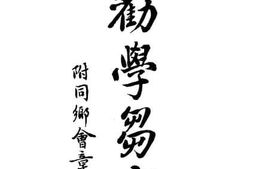 勸學芻
附同鄉會章